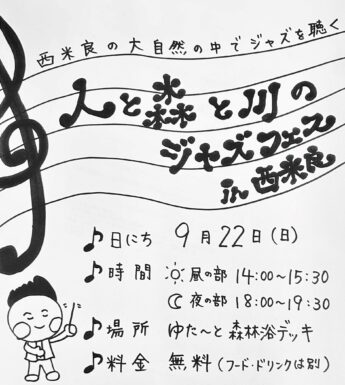 西米良の大自然の中でジャズを聴く
人と森と川の
ジャズフェス
in 西米良
♪日にち 9月22日(日)
♪時間 昼の部 14:00〜15:30
夜の部 18:00〜19:30
♪場所 ゆた〜と 森林浴デッキ
♪料金 無料(フード・ドリンクは別)